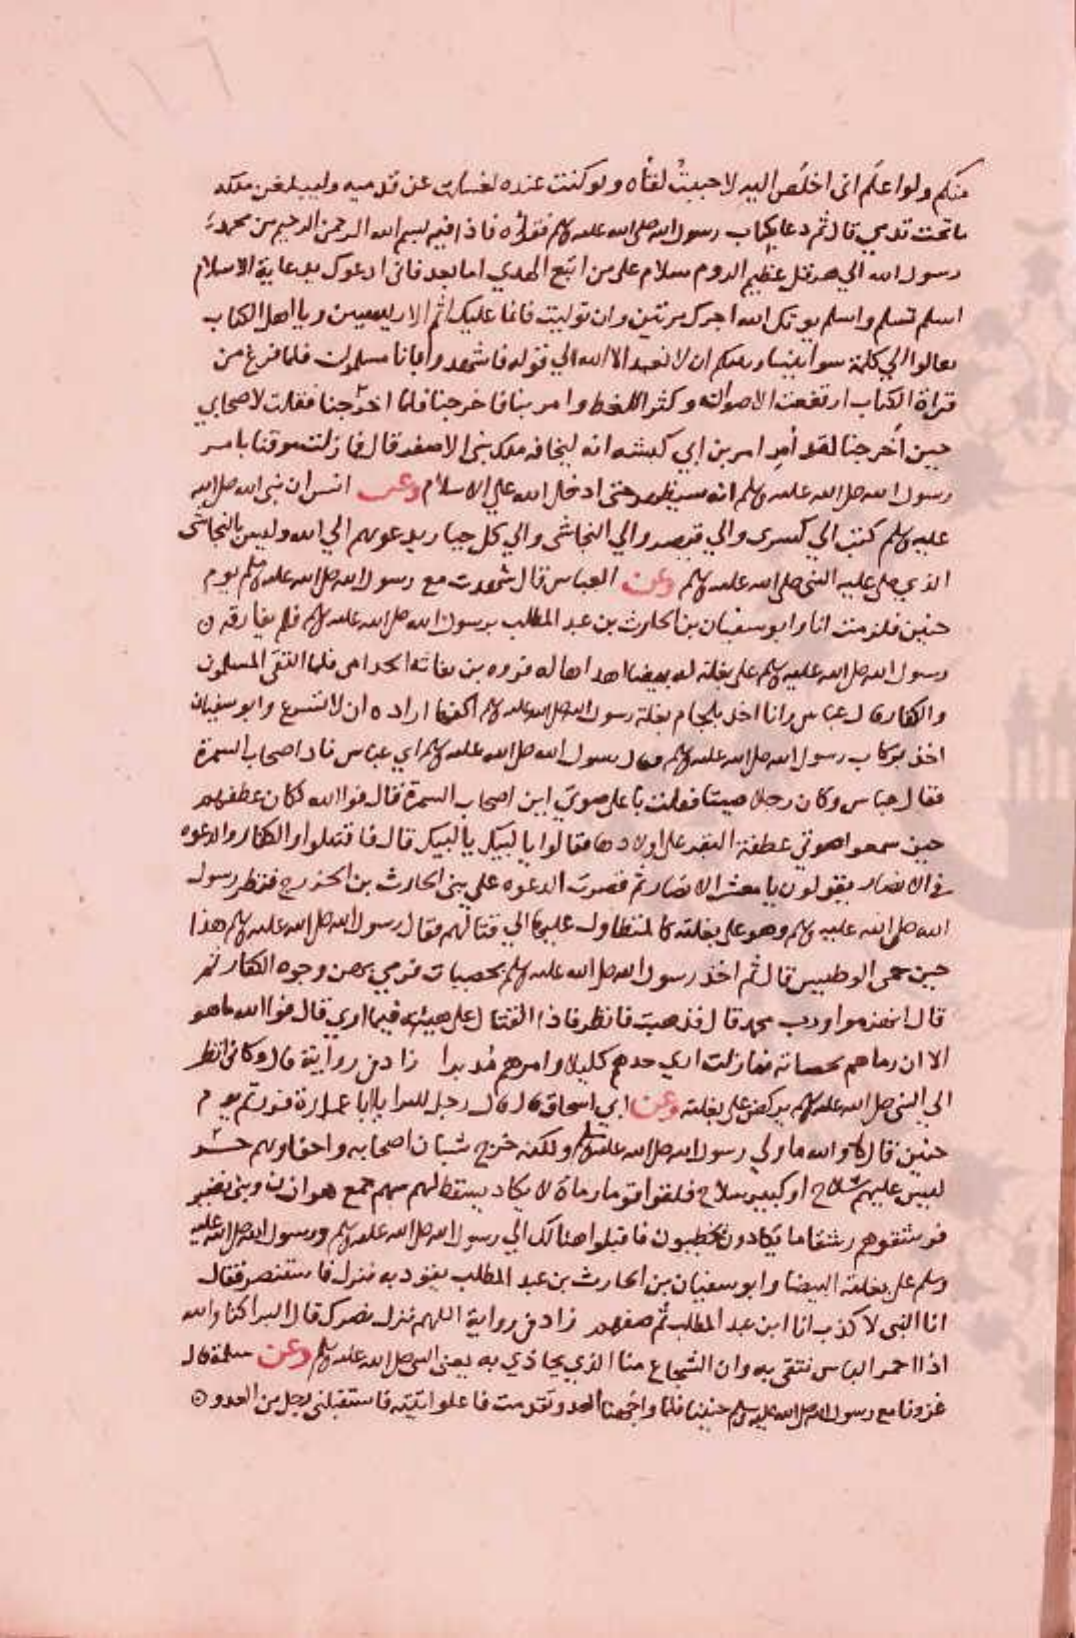 منكم ولو اعلم انى اخلص اليه لاحببت لقاه ولو كنت عنده لغسلت عن قدميه وليبلغن ملكه
ما تحت قدمي قال ثم دعا بكتاب رسول الله صلى الله عليه وسلم فقراه فاذا فيه بسم الله الرحمن الرحيم من محمد
رسول الله الي هرقل عظيم الروم سلام على من اتبع الهدي اما بعد فانى ادعوك بدعاية الاسلام
اسلم تسلم واسلم يوتك الله اجرك مرتين وان توليت فانما عليك اثم الاريسيين ويا اهل الكتاب
تعالوا الي كلمة سوا بيننا وبينكم ان لا نعبد الا الله الي قوله فاشهدوا بانا مسلمون فلما فرغ من
قراة الكتاب ارتفعت الاصوات وكثر اللغط وامر بنا فاخرجنا فلما اخرجنا فقلت لاصحابي
حين اخرجنا لقد امر امر بن ابي كبشه انه ليخافه ملك بنى الاصفر قال فما زلت موقنا بامر
رسول الله صلى الله عليه وسلم انه سيظهر حتى ادخل الله علي الاسلام وعن انس ان نبى الله صلى الله
عليه وسلم كتب الي كسرى والي قيصر والي النجاشى والي كل جبار يدعوهم الي الله وليس بالنجاشى
الذي صلى عليه النبى صلى الله عليه وسلم وعن العباس قال شهدت مع رسول الله صلى الله عليه وسلم يوم
حنين فلزمت انا وابو سفيان بن الحارث بن عبد المطلب برسول الله صلى الله عليه وسلم فلم نفارقه ن
رسول الله صلى الله عليه وسلم على بغلته له بيضا اهداها له فروه بن نفاثه الجذامى فلما التقى المسلمون
والكفار قال عباس وانا اخذ بلجام بغلة رسول الله صلى الله عليه وسلم اكفها اراده ان لا تسرع وابو سفيان
اخذ بركاب رسول الله صلى الله عليه وسلم فقال رسول الله صلى الله عليه وسلم اي عباس ناد اصحاب السمرة
فقال عباس وكان رجلا صيتا فقلت باعلى صوتى اين اصحاب السمرة قال فوالله لكان عطفهم
حين سمعوا صوتي عطفة البقر على اولادها فقالوا يا لبيك يا لبيك قال فاقتتلوا والكفار والدعوه
في الانصار يقولون يا معشر الانصار ثم قصرت الدعوه على بنى الحارث بن الخزرج فنظر رسول
الله صلى الله عليه وسلم وهو على بغلته كالمتطاول عليها الي قتالهم فقال رسول الله صلى الله عليه وسلم هذا
حين حمى الوطيس قال ثم اخذ رسول الله صلى الله عليه وسلم بحصيات فرمي بهن وجوه الكفار ثم
قال انهزموا ورب محمد قال فذهبت فانظر فاذا القتال على هيئته فيما اري قال فوالله ما هو
الا ان رماهم بحصياته فما زلت اري حدهم كليلا وامرهم مدبرا زاد في رواية قال وكانى انظر
الى النبى صلى الله عليه وسلم يركض على بغلته وعن ابي اسحاق قال قال رجل للبرا يا ابا عمارة فررتم يوم
حنين قال لا والله ما ولي رسول الله صلى الله عليه وسلم ولكنه خرج شبان اصحابه واخفاوهم حسر
ليس عليهم سلاح او كبير سلاح فلقوا قوما رماة لا يكاد يسقط لهم سهم جمع هوازن وبنى نصر
فرشقوهم رشقا ما يكادون يخطيون فاقبلوا هنالك الي رسول الله صلى الله عليه وسلم ورسول الله صلى الله عليه
وسلم على بغلته البيضا وابو سفيان بن الحارث بن عبد المطلب يقود به فنزل فاستنصر فقال
انا النبى لا كذب انا ابن عبد المطلب ثم صفهم زاد في رواية اللهم نزل نصرك قال البرا كنا والله
اذا احمر الباس نتقى به وان الشجاع منا الذي يحاذي به يعنى النبى صلى الله عليه وسلم وعن سلمة قال
غزونا مع رسول الله صلى الله عليه وسلم حنينا فلما واجهنا العدو تقدمت فاعلوا ثنيته فاستقبلنى رجل من العدو